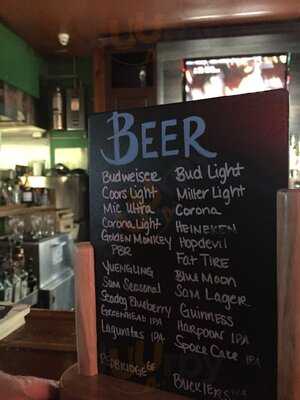 BEER
Budweiser
Coors Light
Mic Ultra
Corona Light
Golden Monkey
PBR
Yuengling
Sam Seasonal
Seadog Blueberry
Greenhead IPA
Lagunitas IPA
Redbridge GF
Bud Light
Miller Light
Corona
Heineken
Hopdevil
Fat Tire
Blue Moon
Sam Lager
Guinness
Harpoon IPA
Space Cake IPA